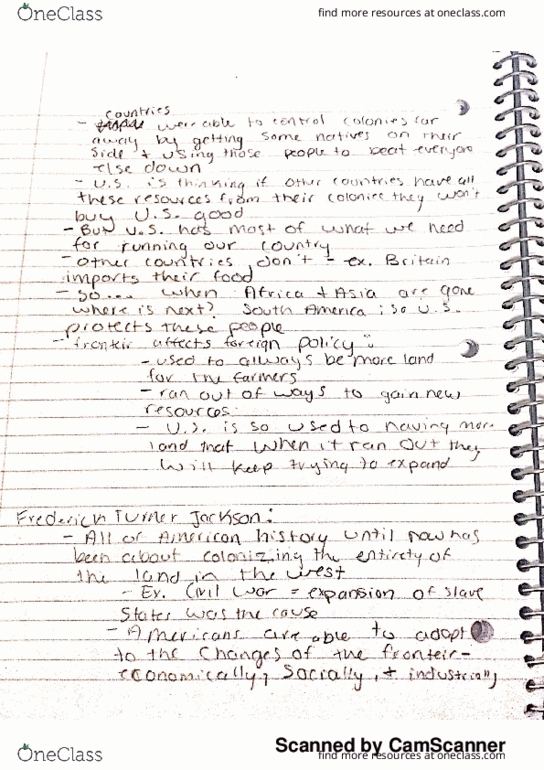 OneClass
find more resources at oneclass.com
countries
- were able to control colonies far
away by getting some natives on their
side + using those people to beat everyone
else down
- U.S. is thinking if other countries have all
these resources from their colonies they won't
buy U.S. good
- But U.S. has most of what we need
for running our country
- other countries don't - ex. Britain
imports their food
- So.... when Africa + Asia are gone
where is next? South America : so U.S.
protects these people
- fronteir affects foreign policy :
- used to always be more land
for the farmers
- ran out of ways to gain new
resources
- U.S. is so used to having more
land that when it ran out they
will keep trying to expand
Frederich Turner Jackson:
- All of American history until now has
been about colonizing the entirety of
the land in the west
- Ex. Civil War = expansion of slave
States was the cause
- Americans are able to adapt
to the changes of the fronteir-
economically, socially, + industrially
Scanned by CamScanner
OneClass
find more resources at oneclass.com